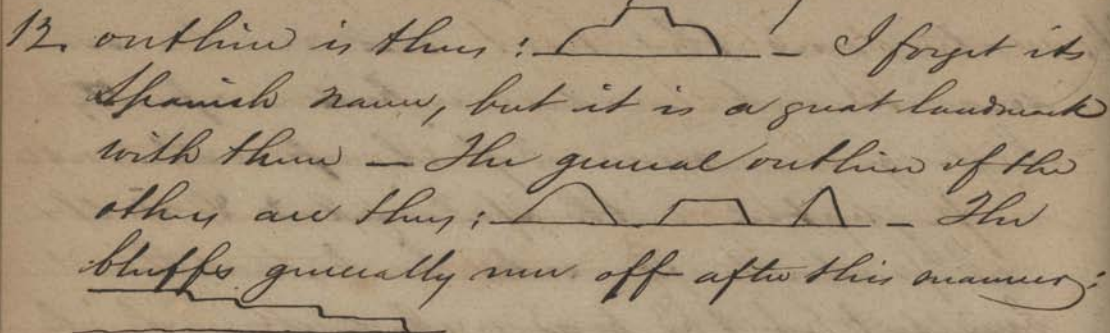 12. outline is thus: — I forget its
Spanish name, but it is a great landmark
with them — The general outline of the
others are thus: — The
bluffs generally run off after this manner: